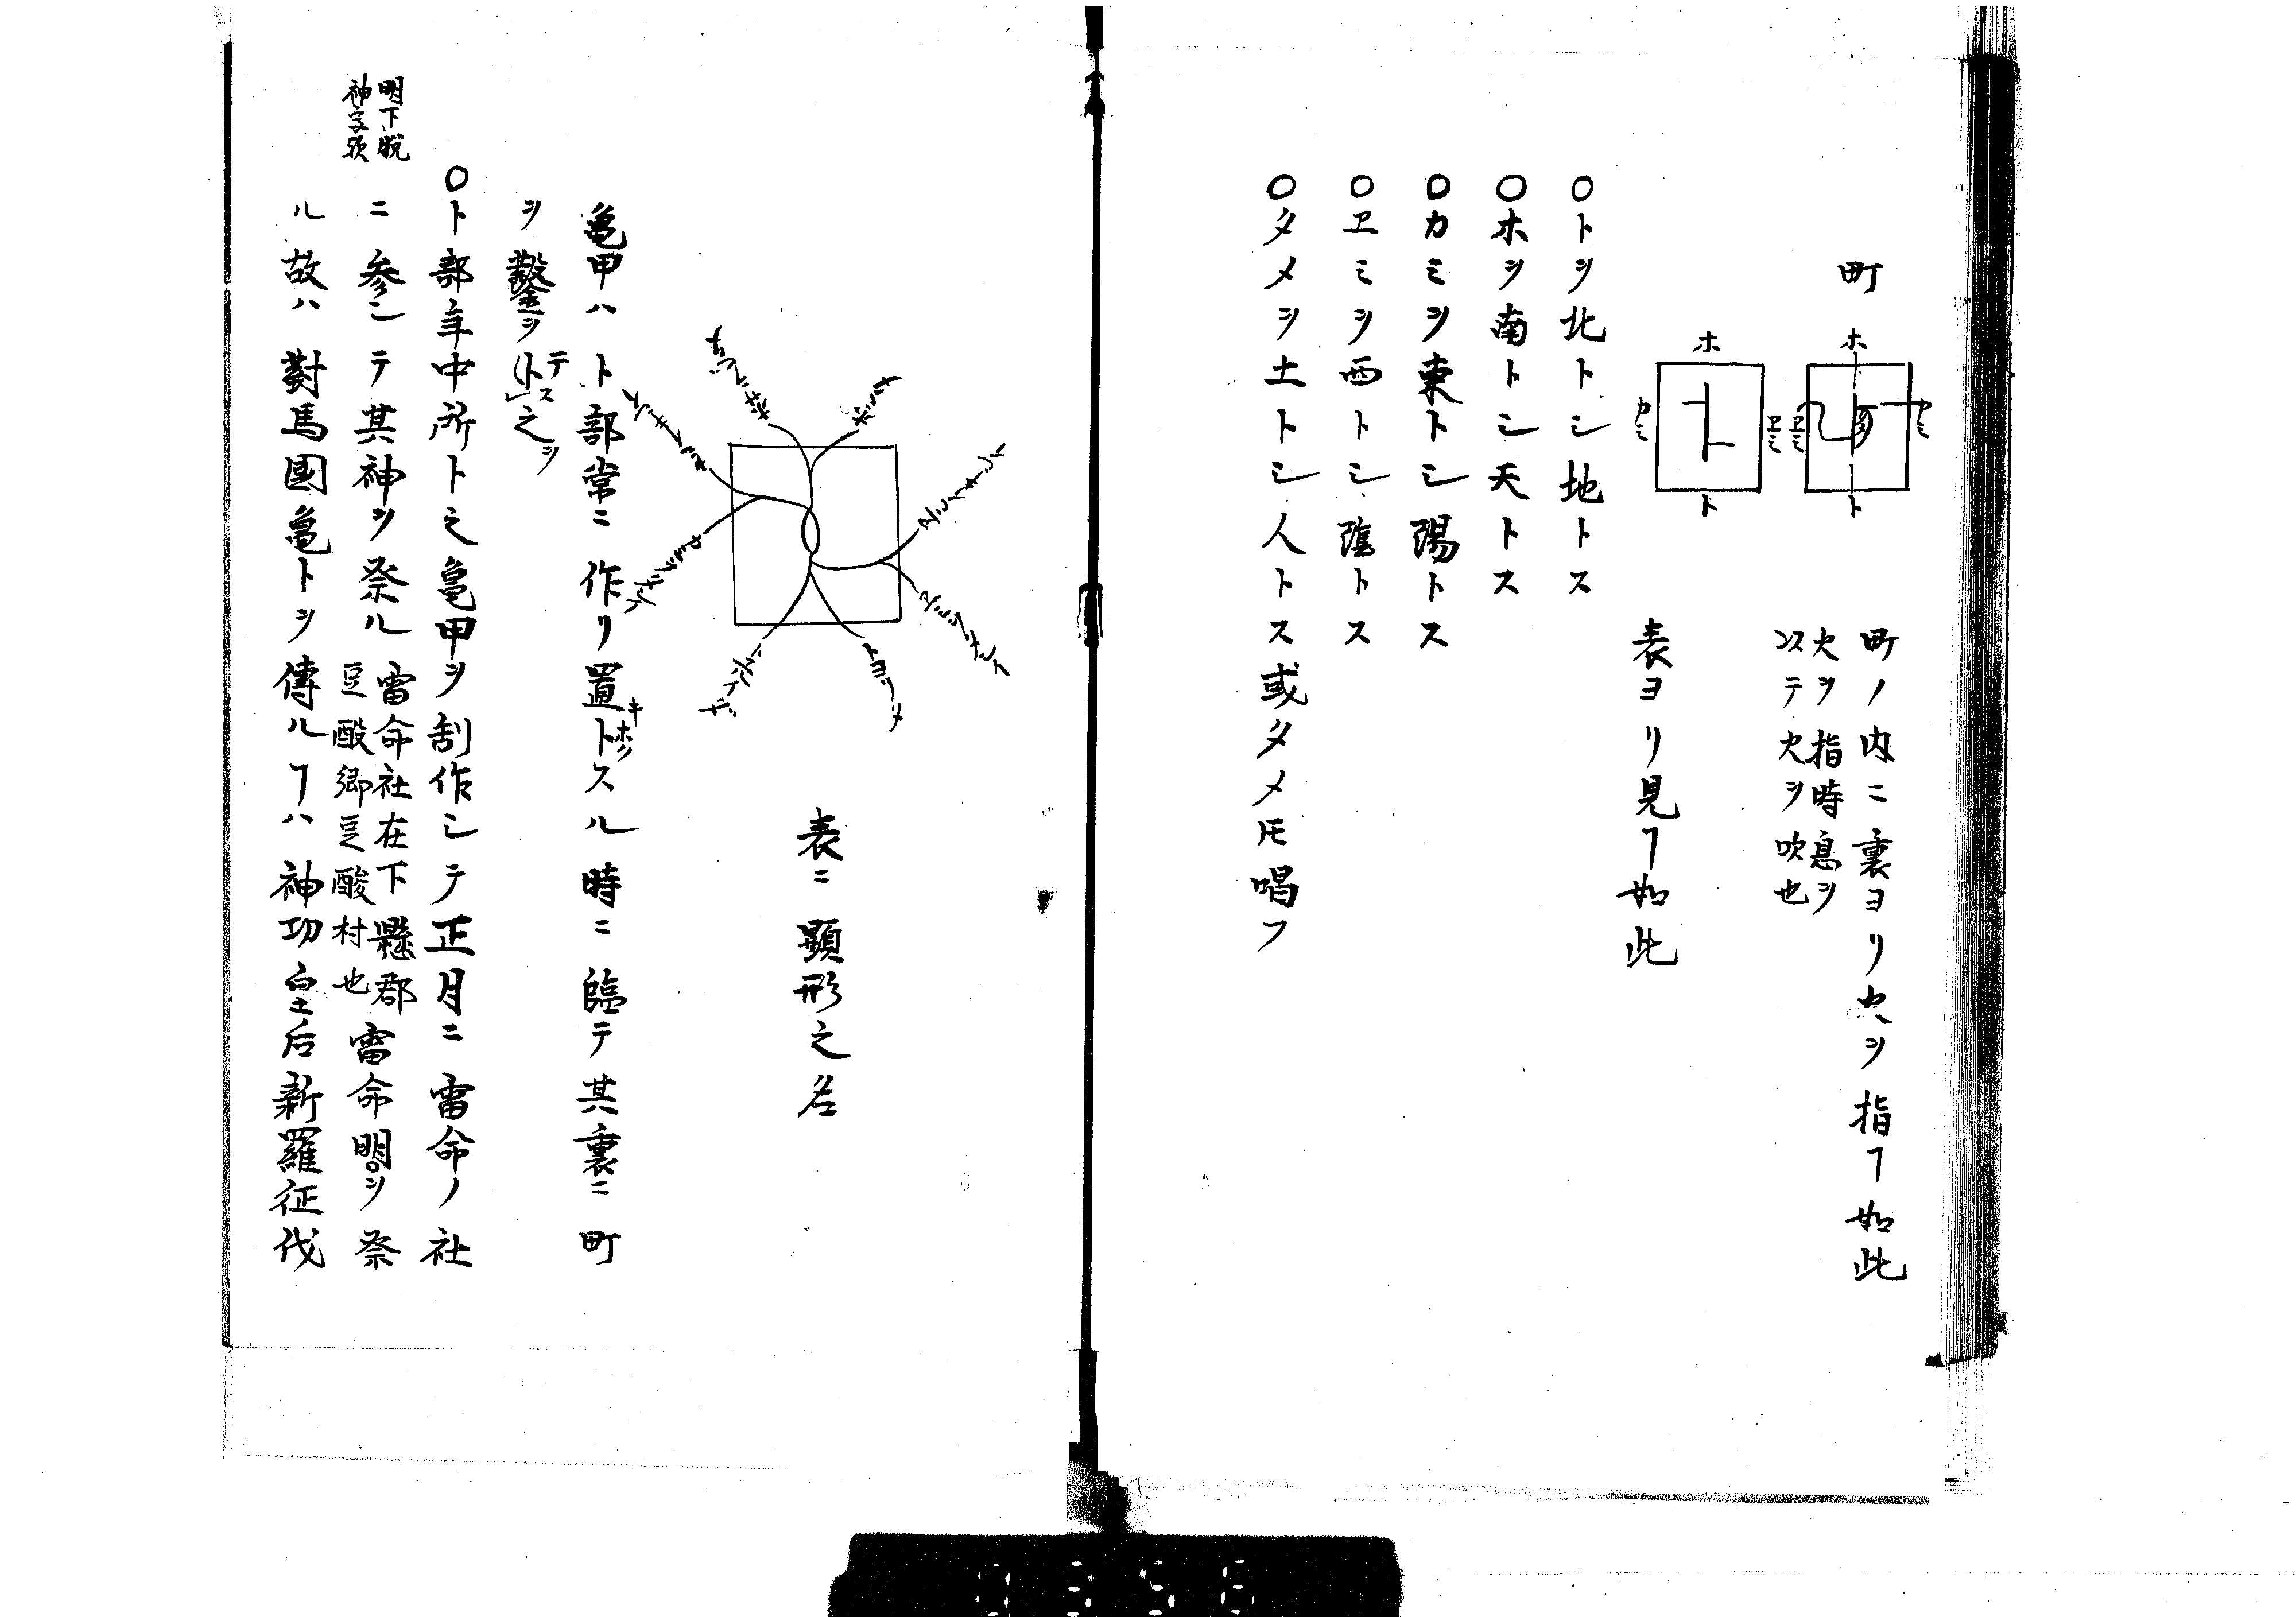 町
ホ
カミ
ヱミ
ト
ホ
カミ
ヱミ
ト
町ノ内ニ裏ヨリ火ヲ指ヿ如此
火ヲ指時息ヲ
以テ火ヲ吹也
表ヨリ見ヿ如此
○トヲ北トシ地トス
○ホヲ南トシ天トス
○カミヲ東トシ陽トス
○ヱミヲ西トシ陰トス
○タメヲ土トシ人トス或タメ𪜈唱フ
表ニ顕形之名
亀甲ハ卜部常ニ作リ置キ卜ホノスル時ニ臨テ其裏ニ町
ヲ鑿ヲテ卜ス之ヲ
○卜部年中所卜之亀甲ヲ刮作シテ正月ニ雷命ノ社
ニ参シテ其神ヲ祭ル
雷命社在下縣郡
豆酘郷豆酘村也
雷命明ヲ祭
ル故ハ對馬國亀卜ヲ傳ルヿハ神功皇后新羅征伐
明下脱
神字欤